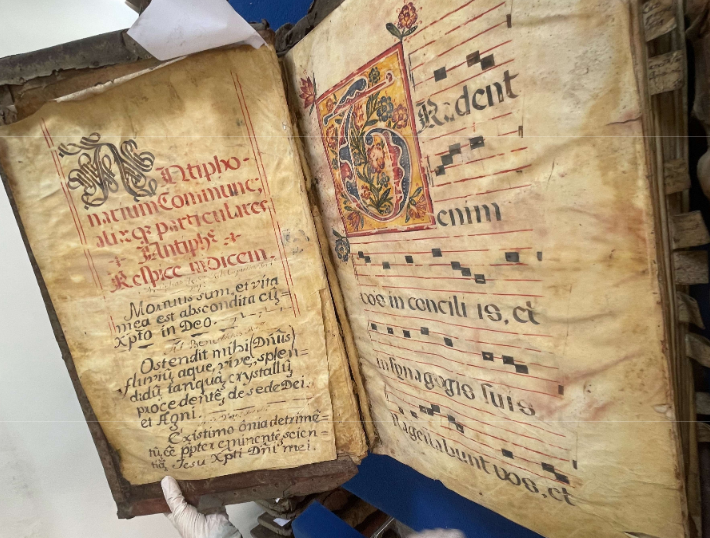 Antipho-
narium Commune,
aliaeqe particulares
Antiphe
Respice
Mortuus sum, et vita
mea est abscondita cū=
Xpto in Deo.
Ostendit mihi (Dnus)
fluviū aque, vive, splen-
didū, tanquā crystallū,
procedentē, de sede Dei.
et Agni.
Existimo ōnia detrimē=
tū, ppter eminentē, scien-
tiā, Jesu Xpti Dni mei.
Tradent
enim
vos in concili is, et
in synagogis suis
flagellabunt vos, et